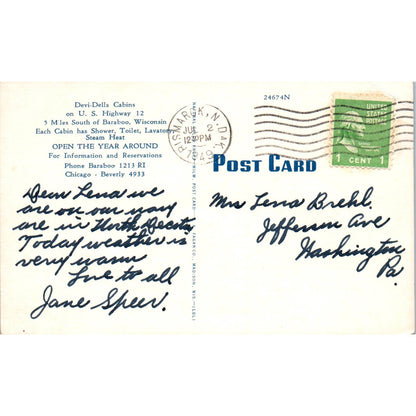 Devi-Dells Cabins
on U. S. Highway 12
5 Miles South of Baraboo, Wisconsin
Each Cabin has Shower, Toilet, Lavatory
Steam Heat
OPEN THE YEAR AROUND
For Information and Reservations
Phone Baraboo 1213 RI
Chicago - Beverly 4933
Dear Lena we
are on our way
are in North Decota
Today weather is
very warm
Love to all
Jane Speer.
BISMARCK, N. DAK.
JUL 2
12 30 PM
24674N
UNITED
STATES
POSTAGE
1 CENT 1
POST CARD
Mrs Lena Brehl.
Jefferson Ave
Washington
Pa.